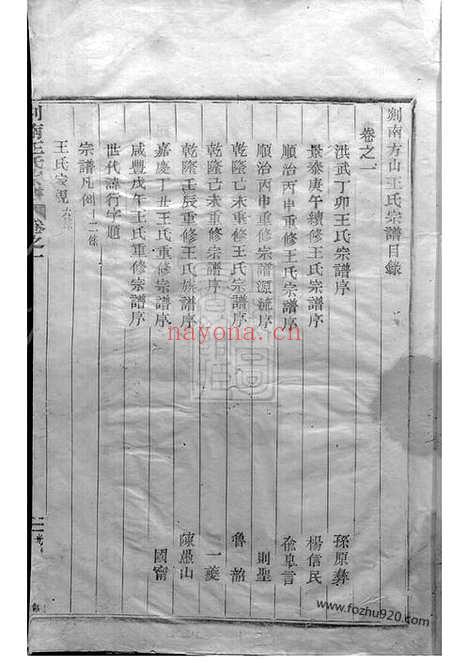 剡南方山王氏宗譜目錄
卷之一
洪武丁卯王氏宗譜序 孫原彝
景泰庚午續修王氏宗譜序 楊信民
順治丙申重修王氏宗譜序
順治丙申重修宗譜源流序 則聖
乾隆己未重修王氏宗譜序 魯韶
乾隆己未重修宗譜序 一夔
乾隆壬辰重修王氏族譜序 陳愚山
嘉慶丁丑王氏重修宗譜序 國甯
咸豐戊午王氏重修宗譜序
世代諱行字題
宗譜凡例 十二條
王氏家規
卷之一
nayona.cn
www.fozhu920.com